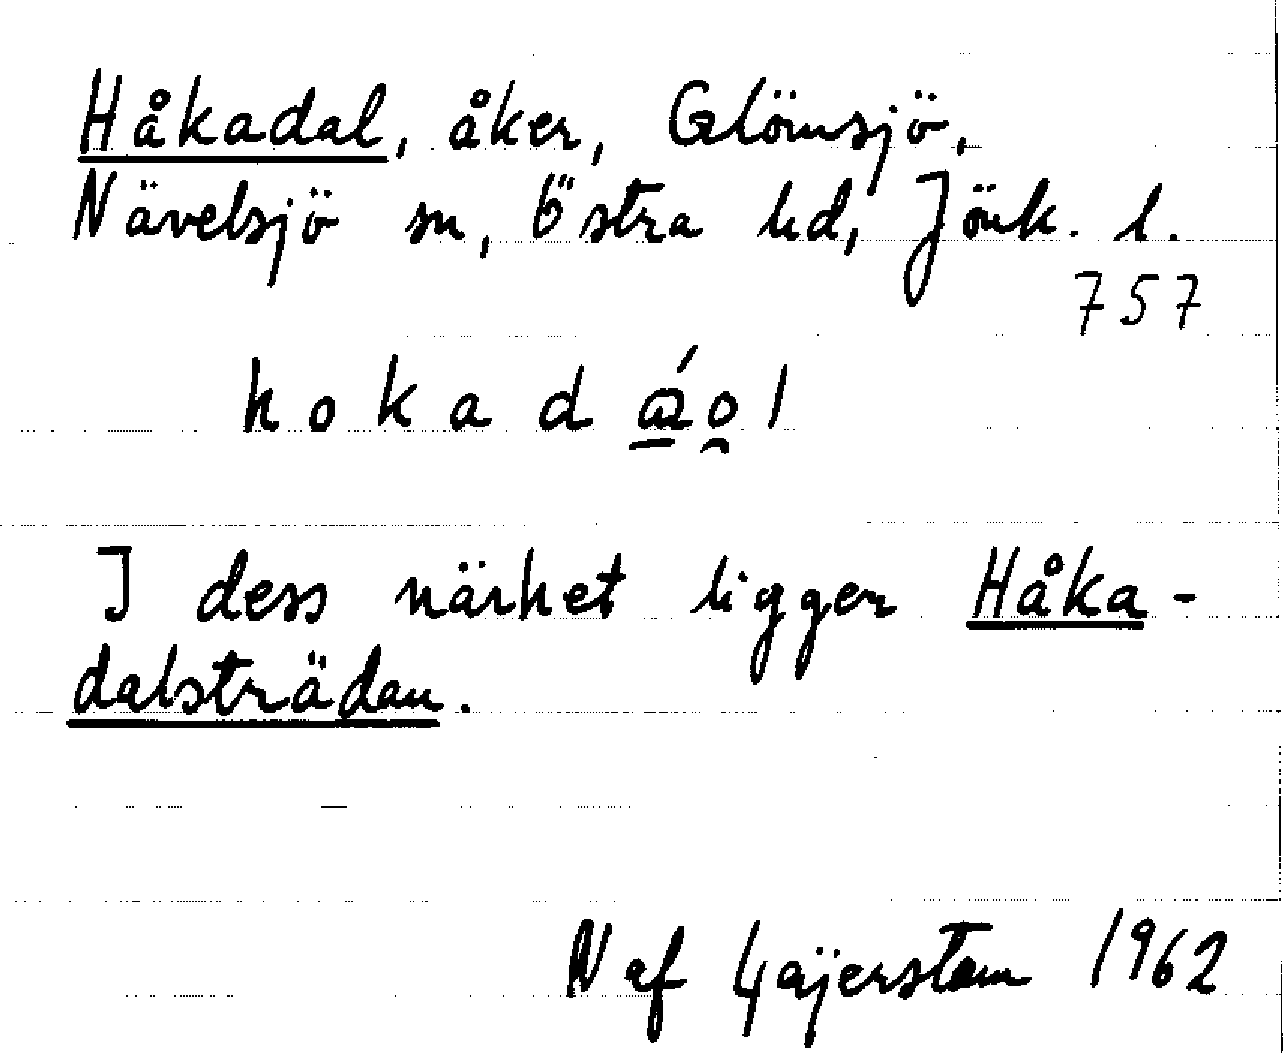 Håkadal, åker, Glömsjö,
Nävelsjö sn, Östra hd, Jönk. l.
757
hokadá̱o̯l
I dess närhet ligger Håka-
dalsträdan.
N af Gajerstam 1962